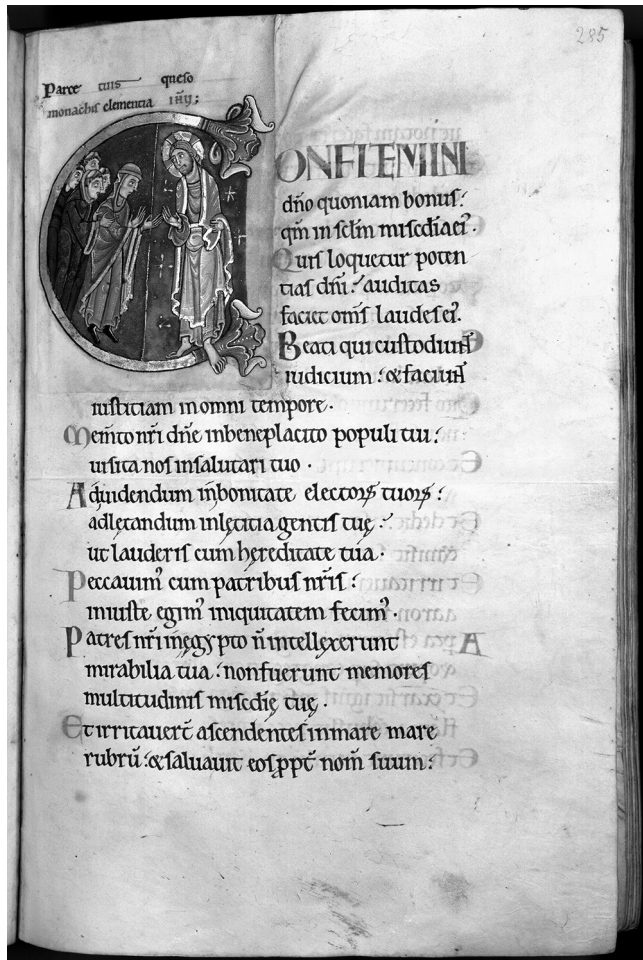 285
Parce tuis queso
monachis clementia iħu;
CONFITEMINI
dn̄o quoniam bonus:
qm̄ in sclm̄ misc̄dia ei'.
Quis loquetur poten
tias dn̄i: auditas
faciet om̄s laudes ei'.
Beati qui custodiunt
iudicium: & faciunt
iustitiam in omni tempore.
Mem̄to nr̄i dn̄e in beneplacito populi tui:
uisita nos in salutari tuo.
Ad uidendum in bonitate electorꝝ tuorꝝ:
ad lętandum in lętitia gentis tuę:
ut lauderis cum hęreditate tua.
Peccauim' cum patribus nr̄is:
iniuste egim' iniquitatem fecim'.
Patres nr̄i in ęgypto n̄ intellexerunt
mirabilia tua: non fuerunt memores
multitudinis misc̄dię tuę.
Et irritauer̄t ascendentes in mare mare
rubrū: & saluauit eos ꝓpt̄ nom̄ suum: